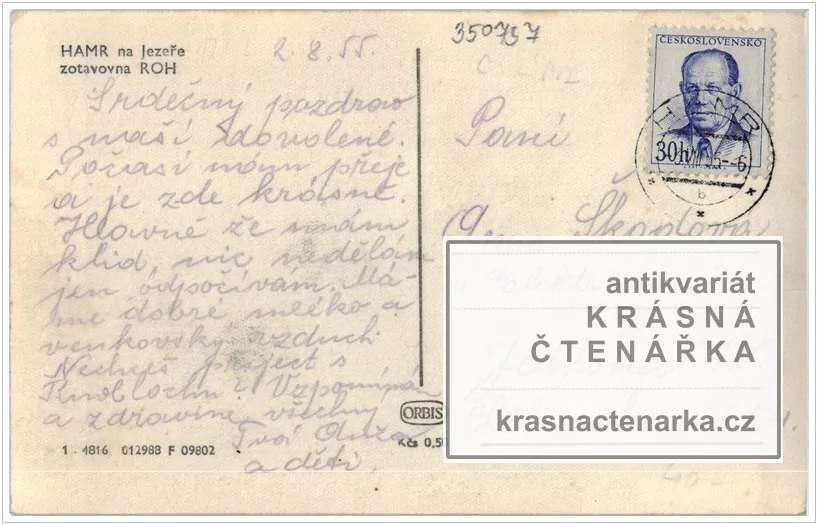 HAMR na Jezeře
zotavovna ROH
2.8.55.
Srdečný pozdrav
s naší dovolené.
Počasí nám přeje
a je zde krásně.
Hlavně že mám
klid, nic nedělám
jen odpočívám. Má-
me dobré mléko a
venkovský vzduch.
Nechceš přijet s
Knoblochu? Vzpomínám
a zdravíme všechny
Tvoí
a děti
1 - 4816 012988 F 09802
350797
ČESKOSLOVENSKO
30h
HAMR
55--6
b
Paní
Škodová
ORBIS
Kčs 0,50
antikvariát
KRÁSNÁ
ČTENÁŘKA
krasnactenarka.cz
40-